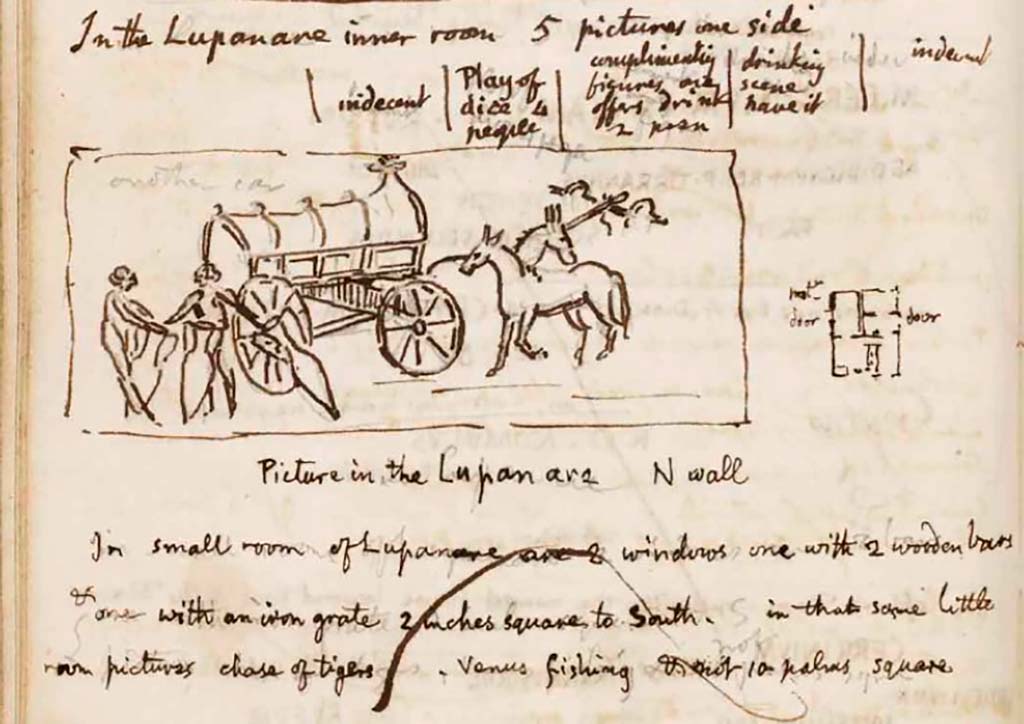 In the Lupanare inner room 5 pictures one side
indecent
Play of
dice 4
people
complimenting
figures one
offers drink
2
drinking
scene
have it
indecent
another car
door
door
Picture in the Lupanare N wall
In small room of Lupanare are 2 windows one with 2 wooden bars
& one with an iron grate 2 inches square to South. in that same little
room pictures chase of tigers . Venus fishing & not 10 palms square